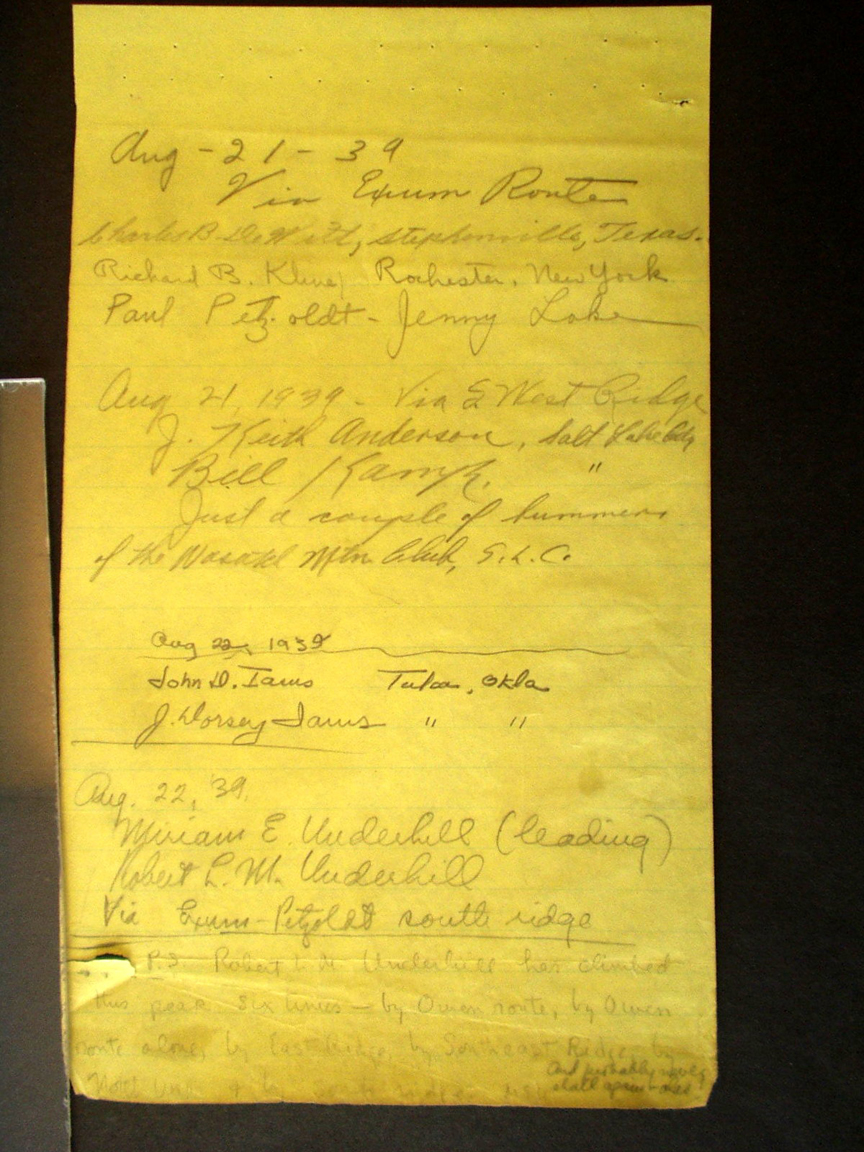 Aug - 21 - 39
Via Exum Route
Charles B. DeWitt, Stephenville, Texas.
Richard B. Kline, Rochester, New York
Paul Petzoldt - Jenny Lake
Aug 21, 1939 - Via West Ridge
J. Keith Anderson, Salt Lake City
Bill Kamp. "
Just a couple of bummers
of the Wasatch Mtn. Club, S.L.C.
Aug 22, 1939
John D. Iams Tulsa, Okla
J. Dorsey Iams " "
Aug. 22, '39.
Miriam E. Underhill (leading)
Robert L. M. Underhill
Via Exum-Petzoldt south ridge
P.S. Robert L. M. Underhill has climbed
this peak six times — by Owen route, by Owen
route alone, by East Ridge, by Southeast Ridge, by
North & by south ridge
And probably never
shall again